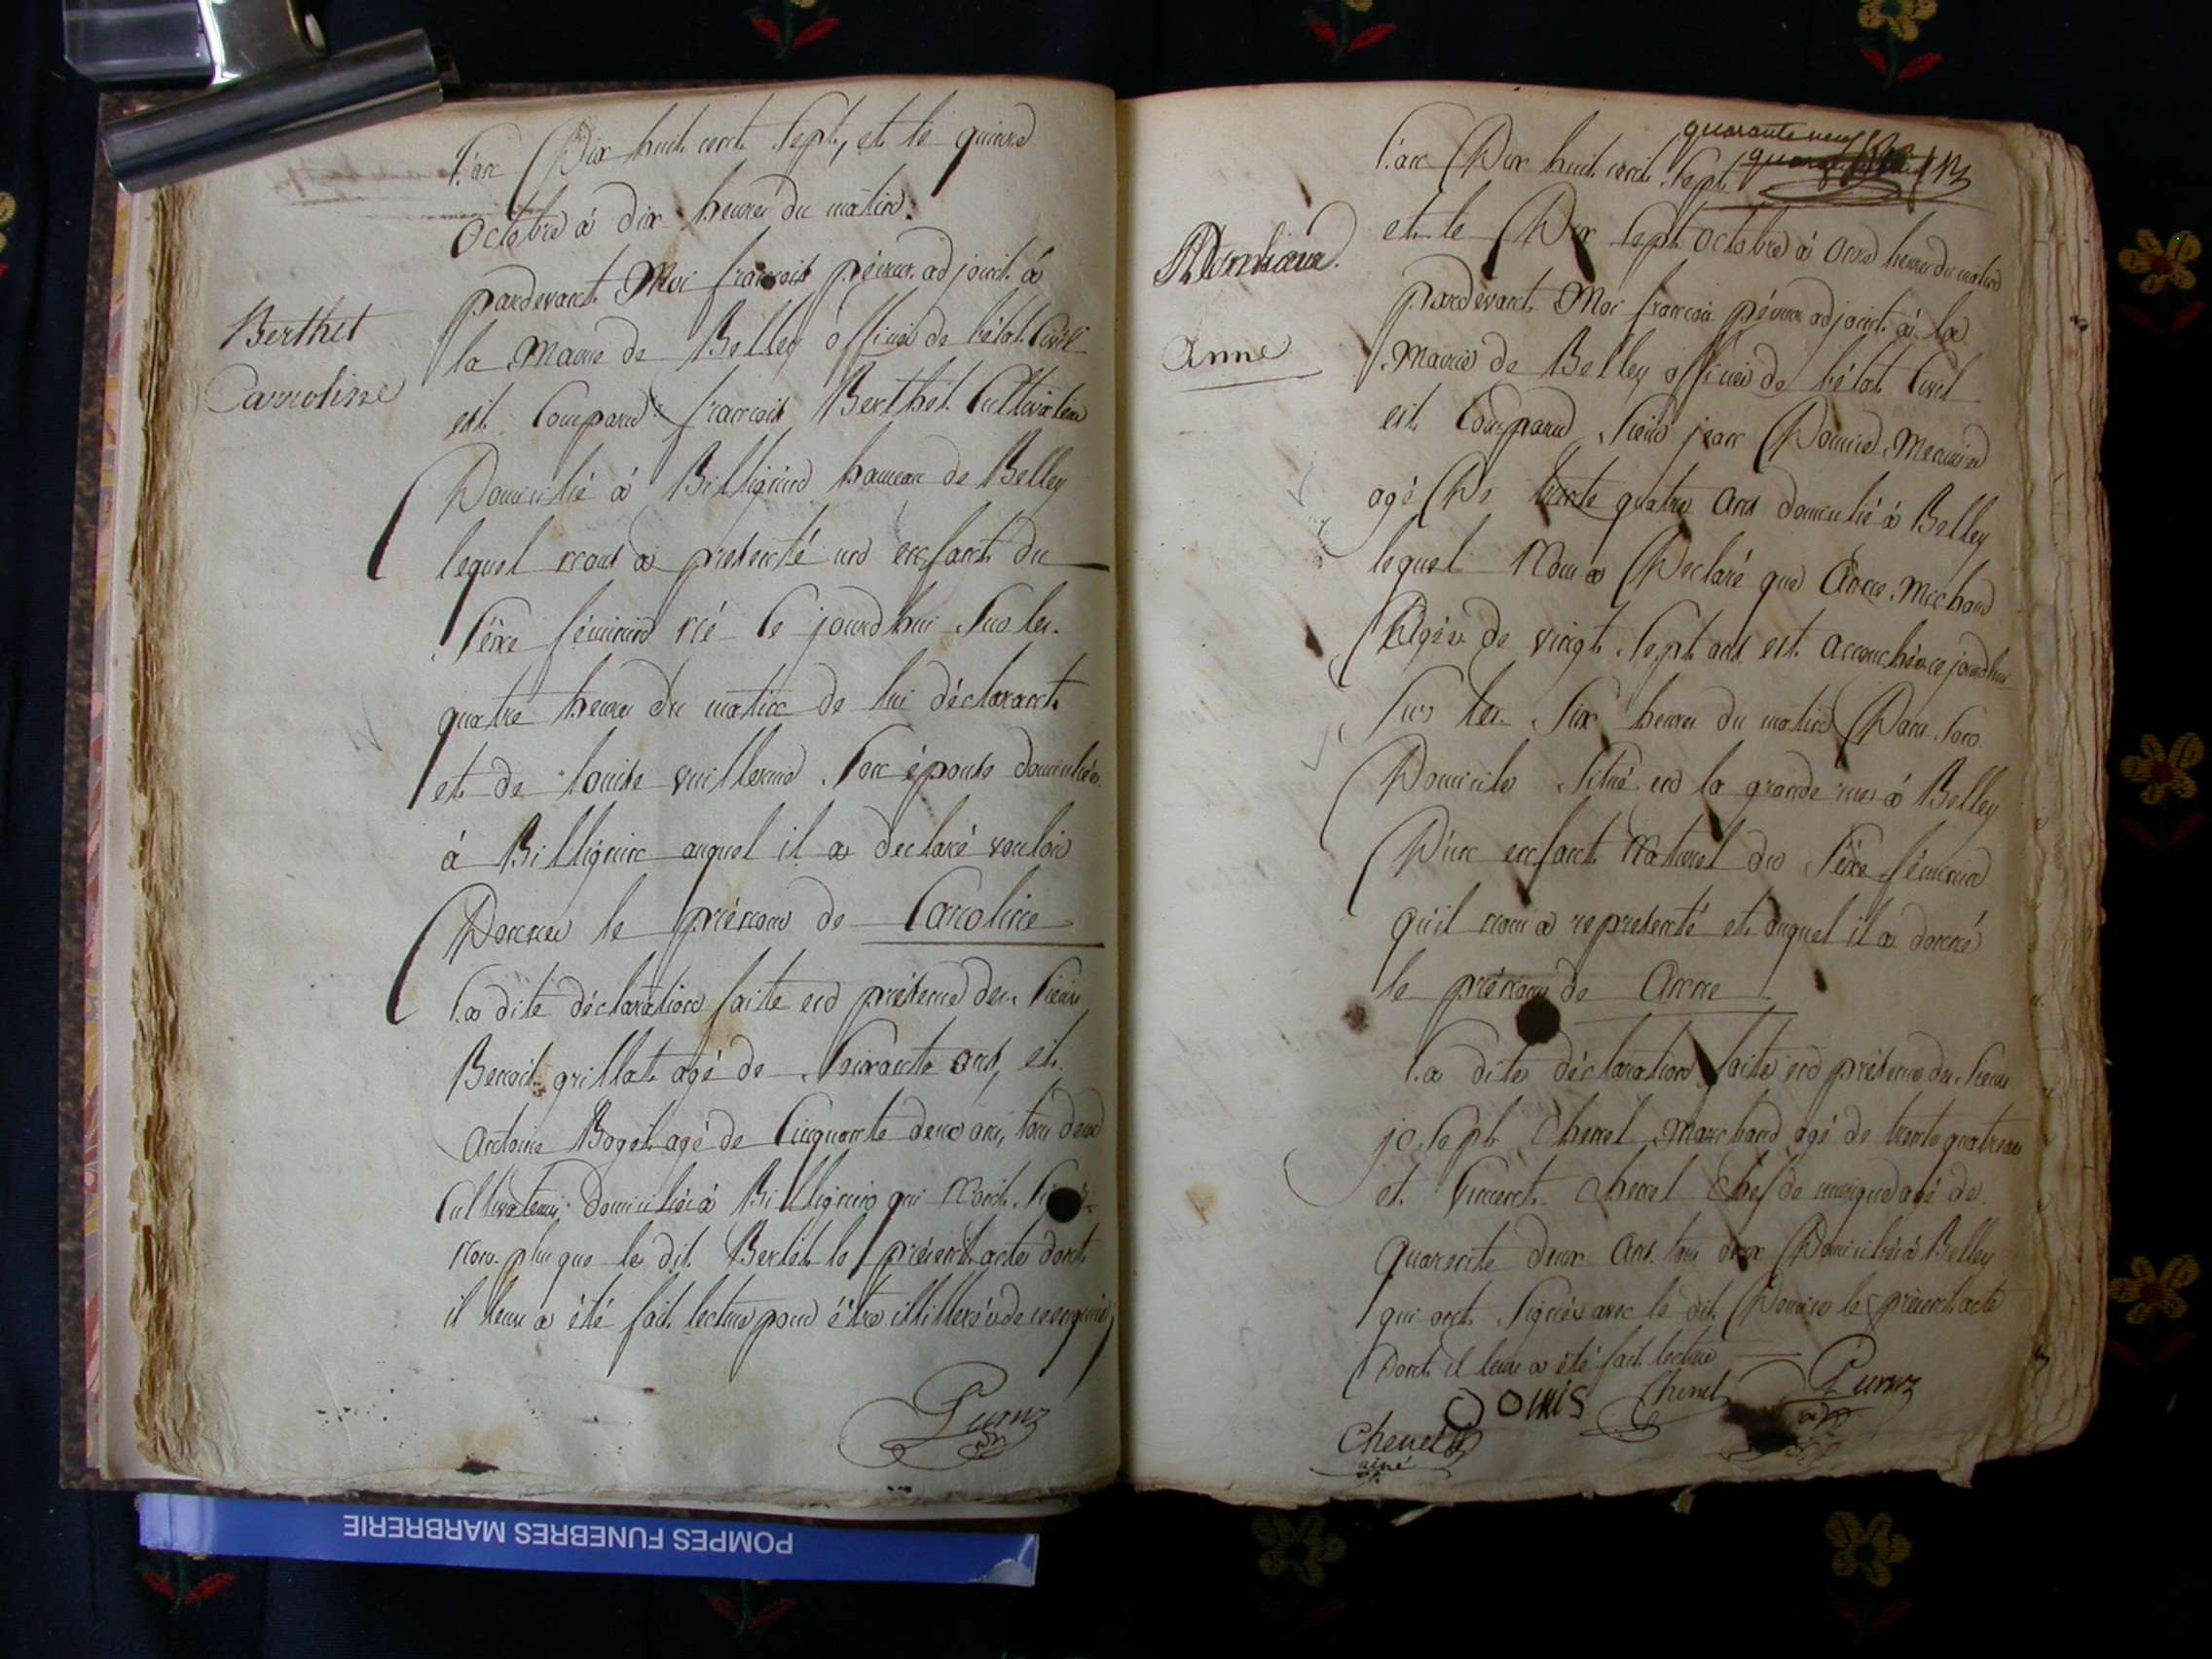 Berthet
Carroline
L'an Dix huit cent Sept, et le quinze
Octobre à dix heures du matin.
pardevant Moi françois adjoint à
la Mairie de Belley officier de l'état Civil
est Comparu françois Berthet Cultivateur
Domicilié à Billignin hameau de Belley
lequel nous a présenté un enfant du
Sexe féminin né Ce jourdhui Sur les
quatre heures du matin de lui déclarant
et de Louise vuillerme Son épouse domiciliée
à Billignin auquel il a declaré vouloir
Donner le prénom de Caroline
La dite déclaration faite en présence des Sieurs
Benoit grillat agé de Soixante ans, et
Antoine Boget agé de Cinquante deux ans, tous deux
Cultivateurs Domiciliés à Billignin qui n'ont
non plus que le dit Bertet le présent acte dont
il leur a été fait lecture pour être illitterés de ce enquis
quarante neuf
L'an Dix huit cent Sept
et le Dix Sept Octobre à Onze heures du matin
Anne
pardevant Moi françois adjoint à la
Mairie de Belley officier de l'état Civil
est Comparu Sieur jean
agé De trente quatre ans domicilié à Belley
lequel Nous a Declaré que Anne Michaud
Agée de vingt Sept ans est accouchée ce jourdhui
Sur les Six heures du matin Dans Son
Domicile Situé en la grande rue à Belley
D'un enfant Naturel du Sexe féminin
qu'il nous a representé et auquel il a donné
le prénom de Anne
La dite déclaration faite en présence des Sieurs
joseph Chenel Marchand agé de trente quatre ans
et Vincent Chenel Chef de musique agé de
quarente deux ans tous deux Domiciliés à Belley
qui ont Signés avec le dit le présent acte
Dont il leur a été fait lecture
Chenel
Chenel
ainé
POMPES FUNEBRES MARBRERIE